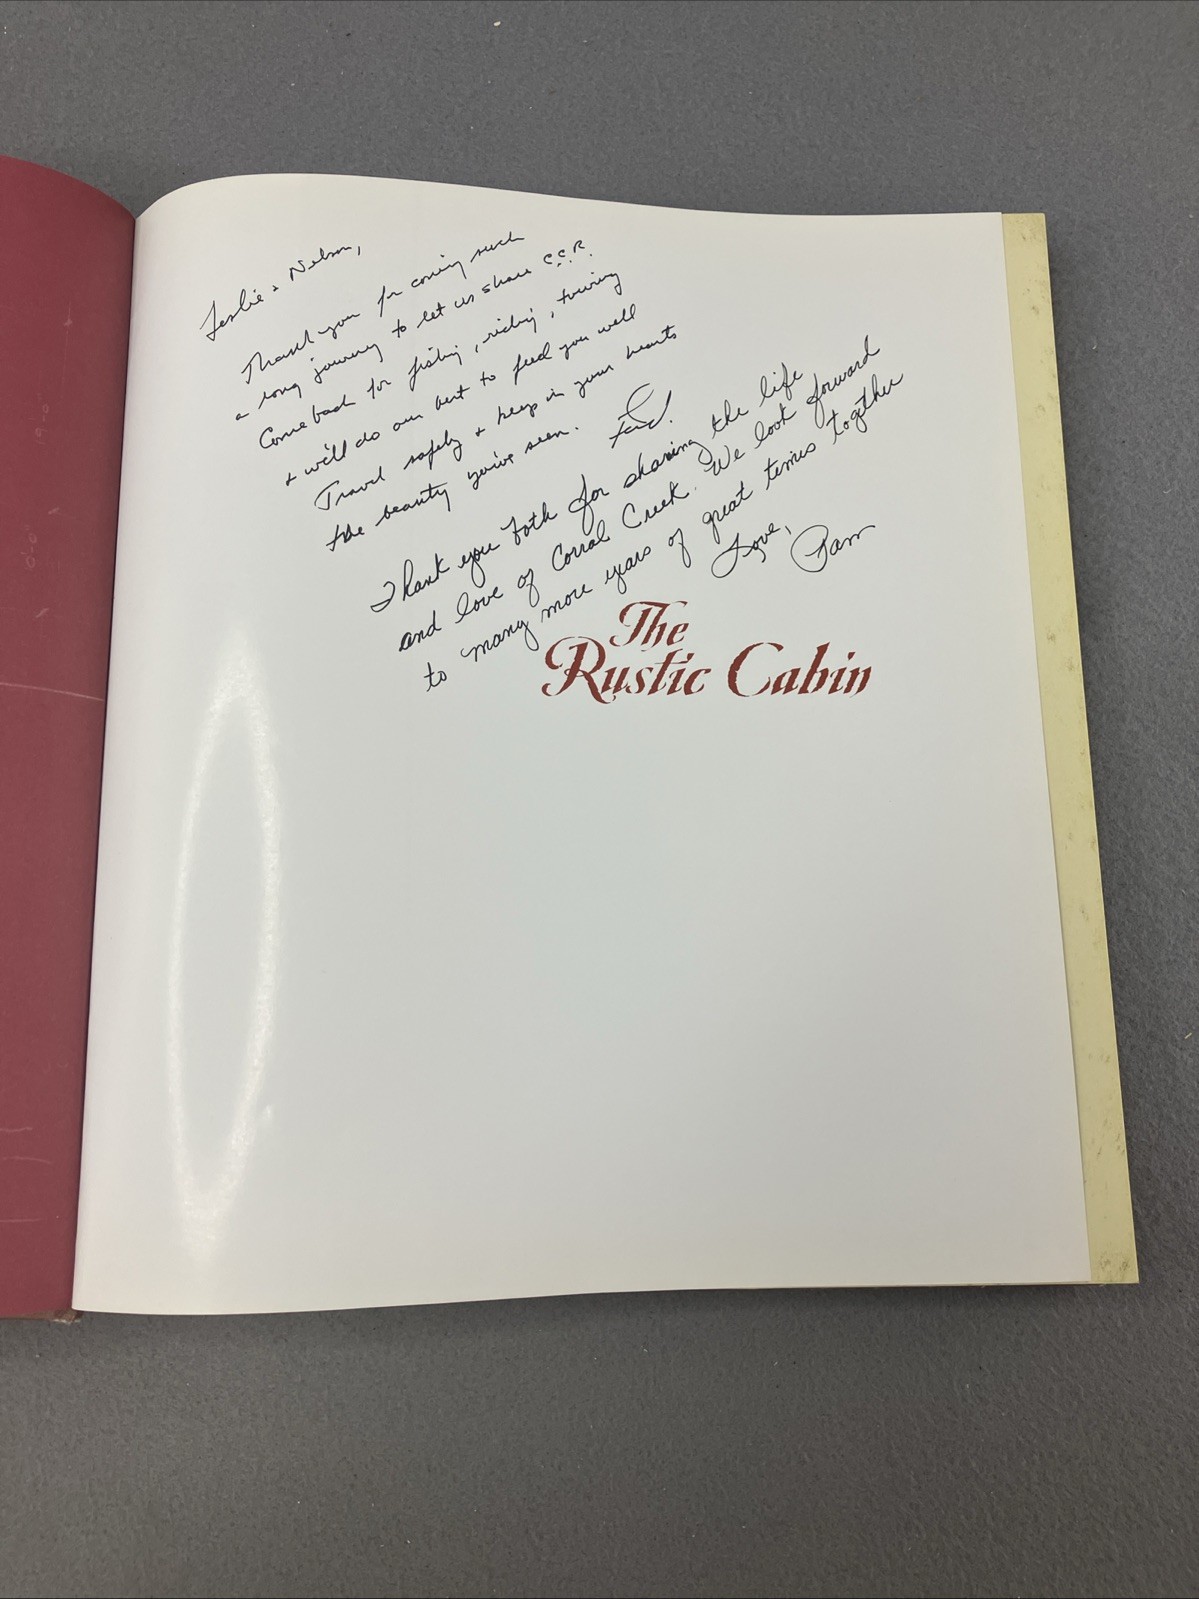 Leslie + Nelson,
Thank you for coming such
a long journey to let us share C.C.R.
Come back for fishing, riding, touring
+ we'll do our best to feed you well
Travel safely + keep in your hearts
the beauty you've seen.
Thank you both for sharing the life
and love of Corral Creek. We look forward
to many more years of great times together
Love,
Pam
The
Rustic Cabin